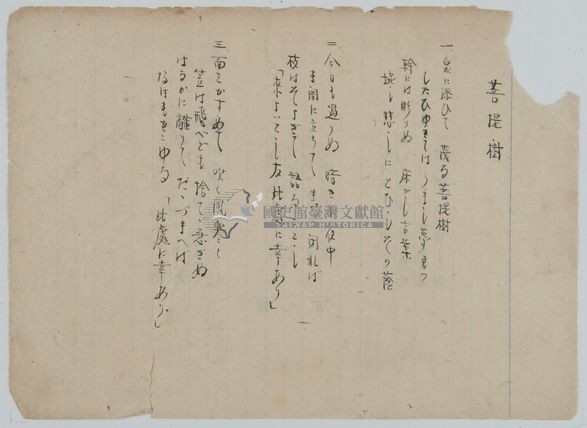 菩提樹
一、泉に添ひて 茂る菩提樹
したひゆきては うまし夢見つ
幹には彫りぬ 床かし言葉
嬉し悲しに とひしその蔭
二、今日も過りぬ 暗き小夜中
ま闇に立ちて まなこ閉れば
枝はそよぎて 語るごとし
「来よいとし友 此處に幸あり」
三、面をかすめて 吹く風寒く
笠は飛べども 捨てゝ急ぎぬ
はるかに離りて たゝづまへば
なほもきこゆる 「此處に幸あり」
國史館臺灣文獻館
TAIWAN HISTORICA